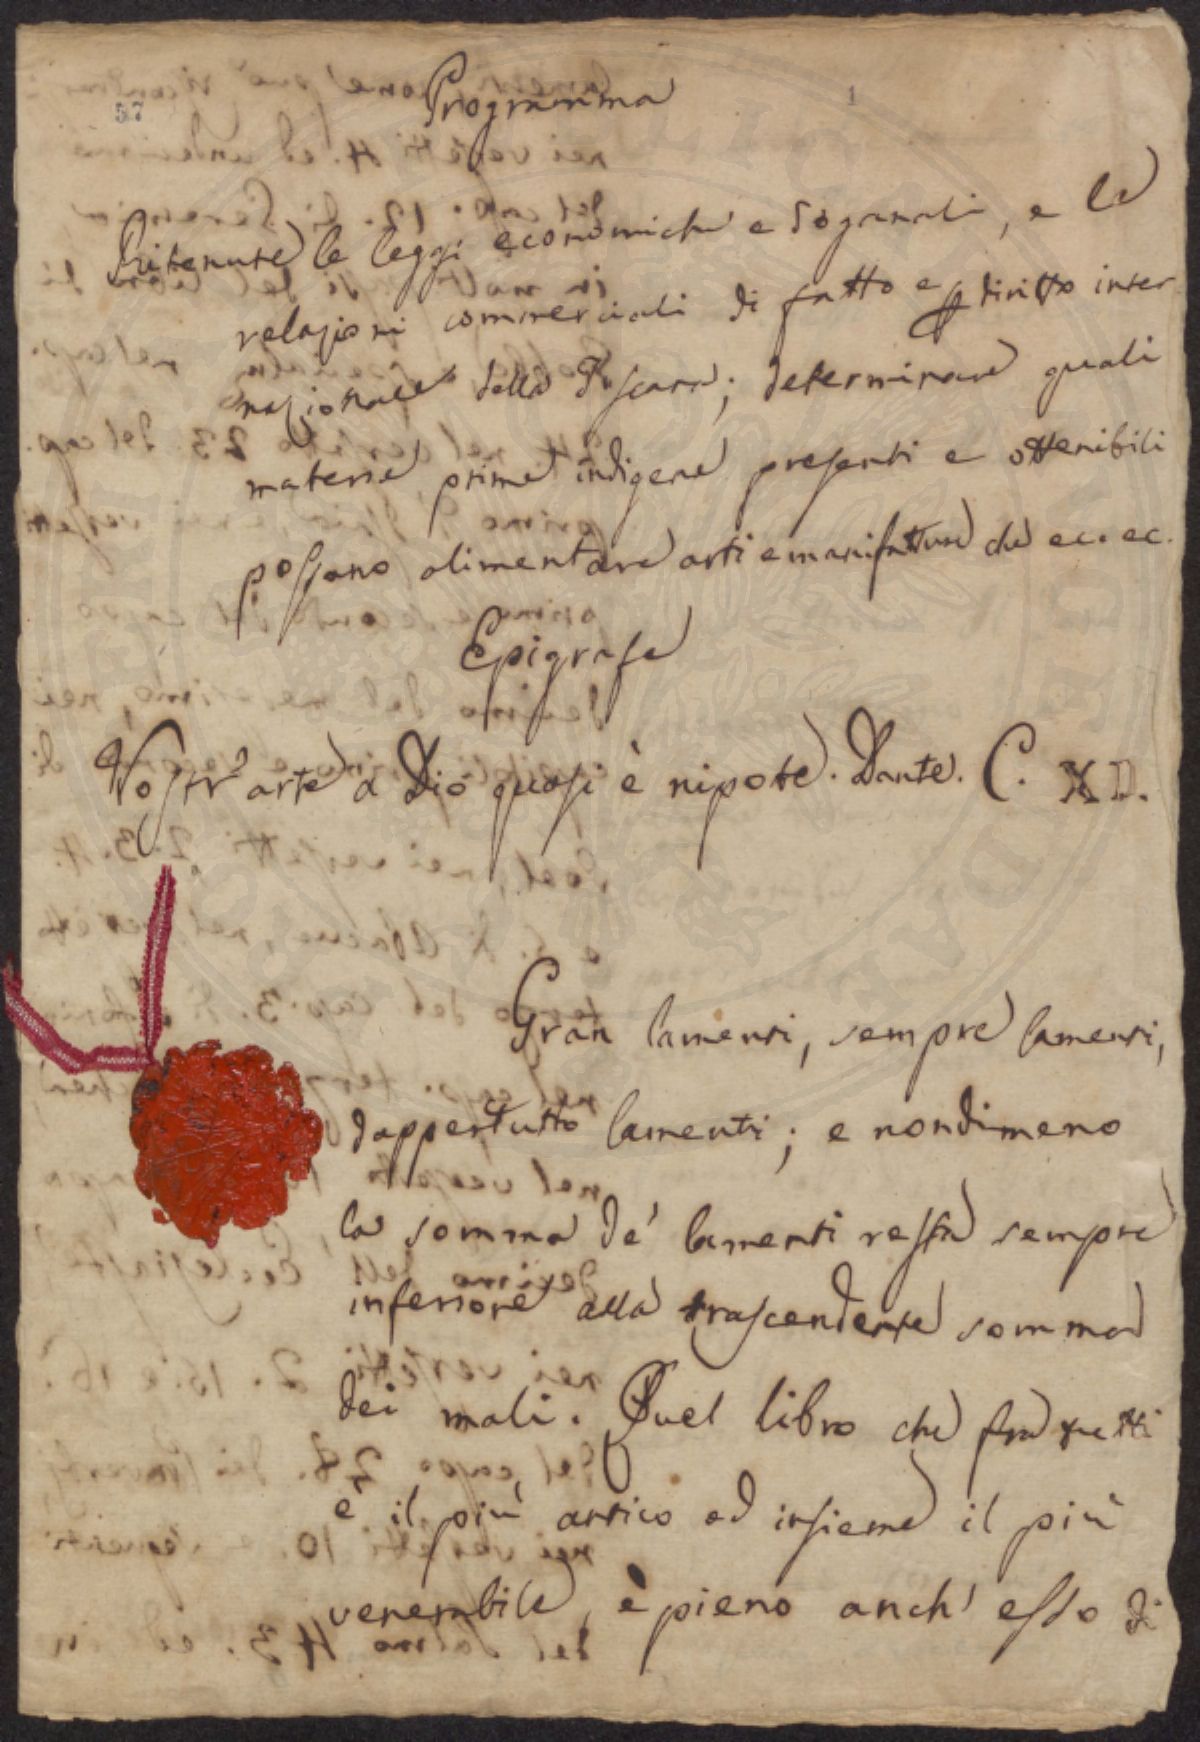 Programma
57
1
Ritenute le leggi economiche e doganali, e le
relazioni commerciali di fatto e diritto inter
nazionale della Toscana; determinare quali
materie prime indigene presenti e ottenibili
possano alimentare arti e manifatture che ec. ec.
Epigrafe
Vostr' arte a Dio quasi è nipote. Dante. C. XI.
Gran lamenti, sempre lamenti,
dappertutto lamenti; e nondimeno
la somma de' lamenti resta sempre
inferiore alla trascendente somma
dei mali. Quel libro che fra tutti
è il più antico ed insieme il più
venerabile, è pieno anch' esso di